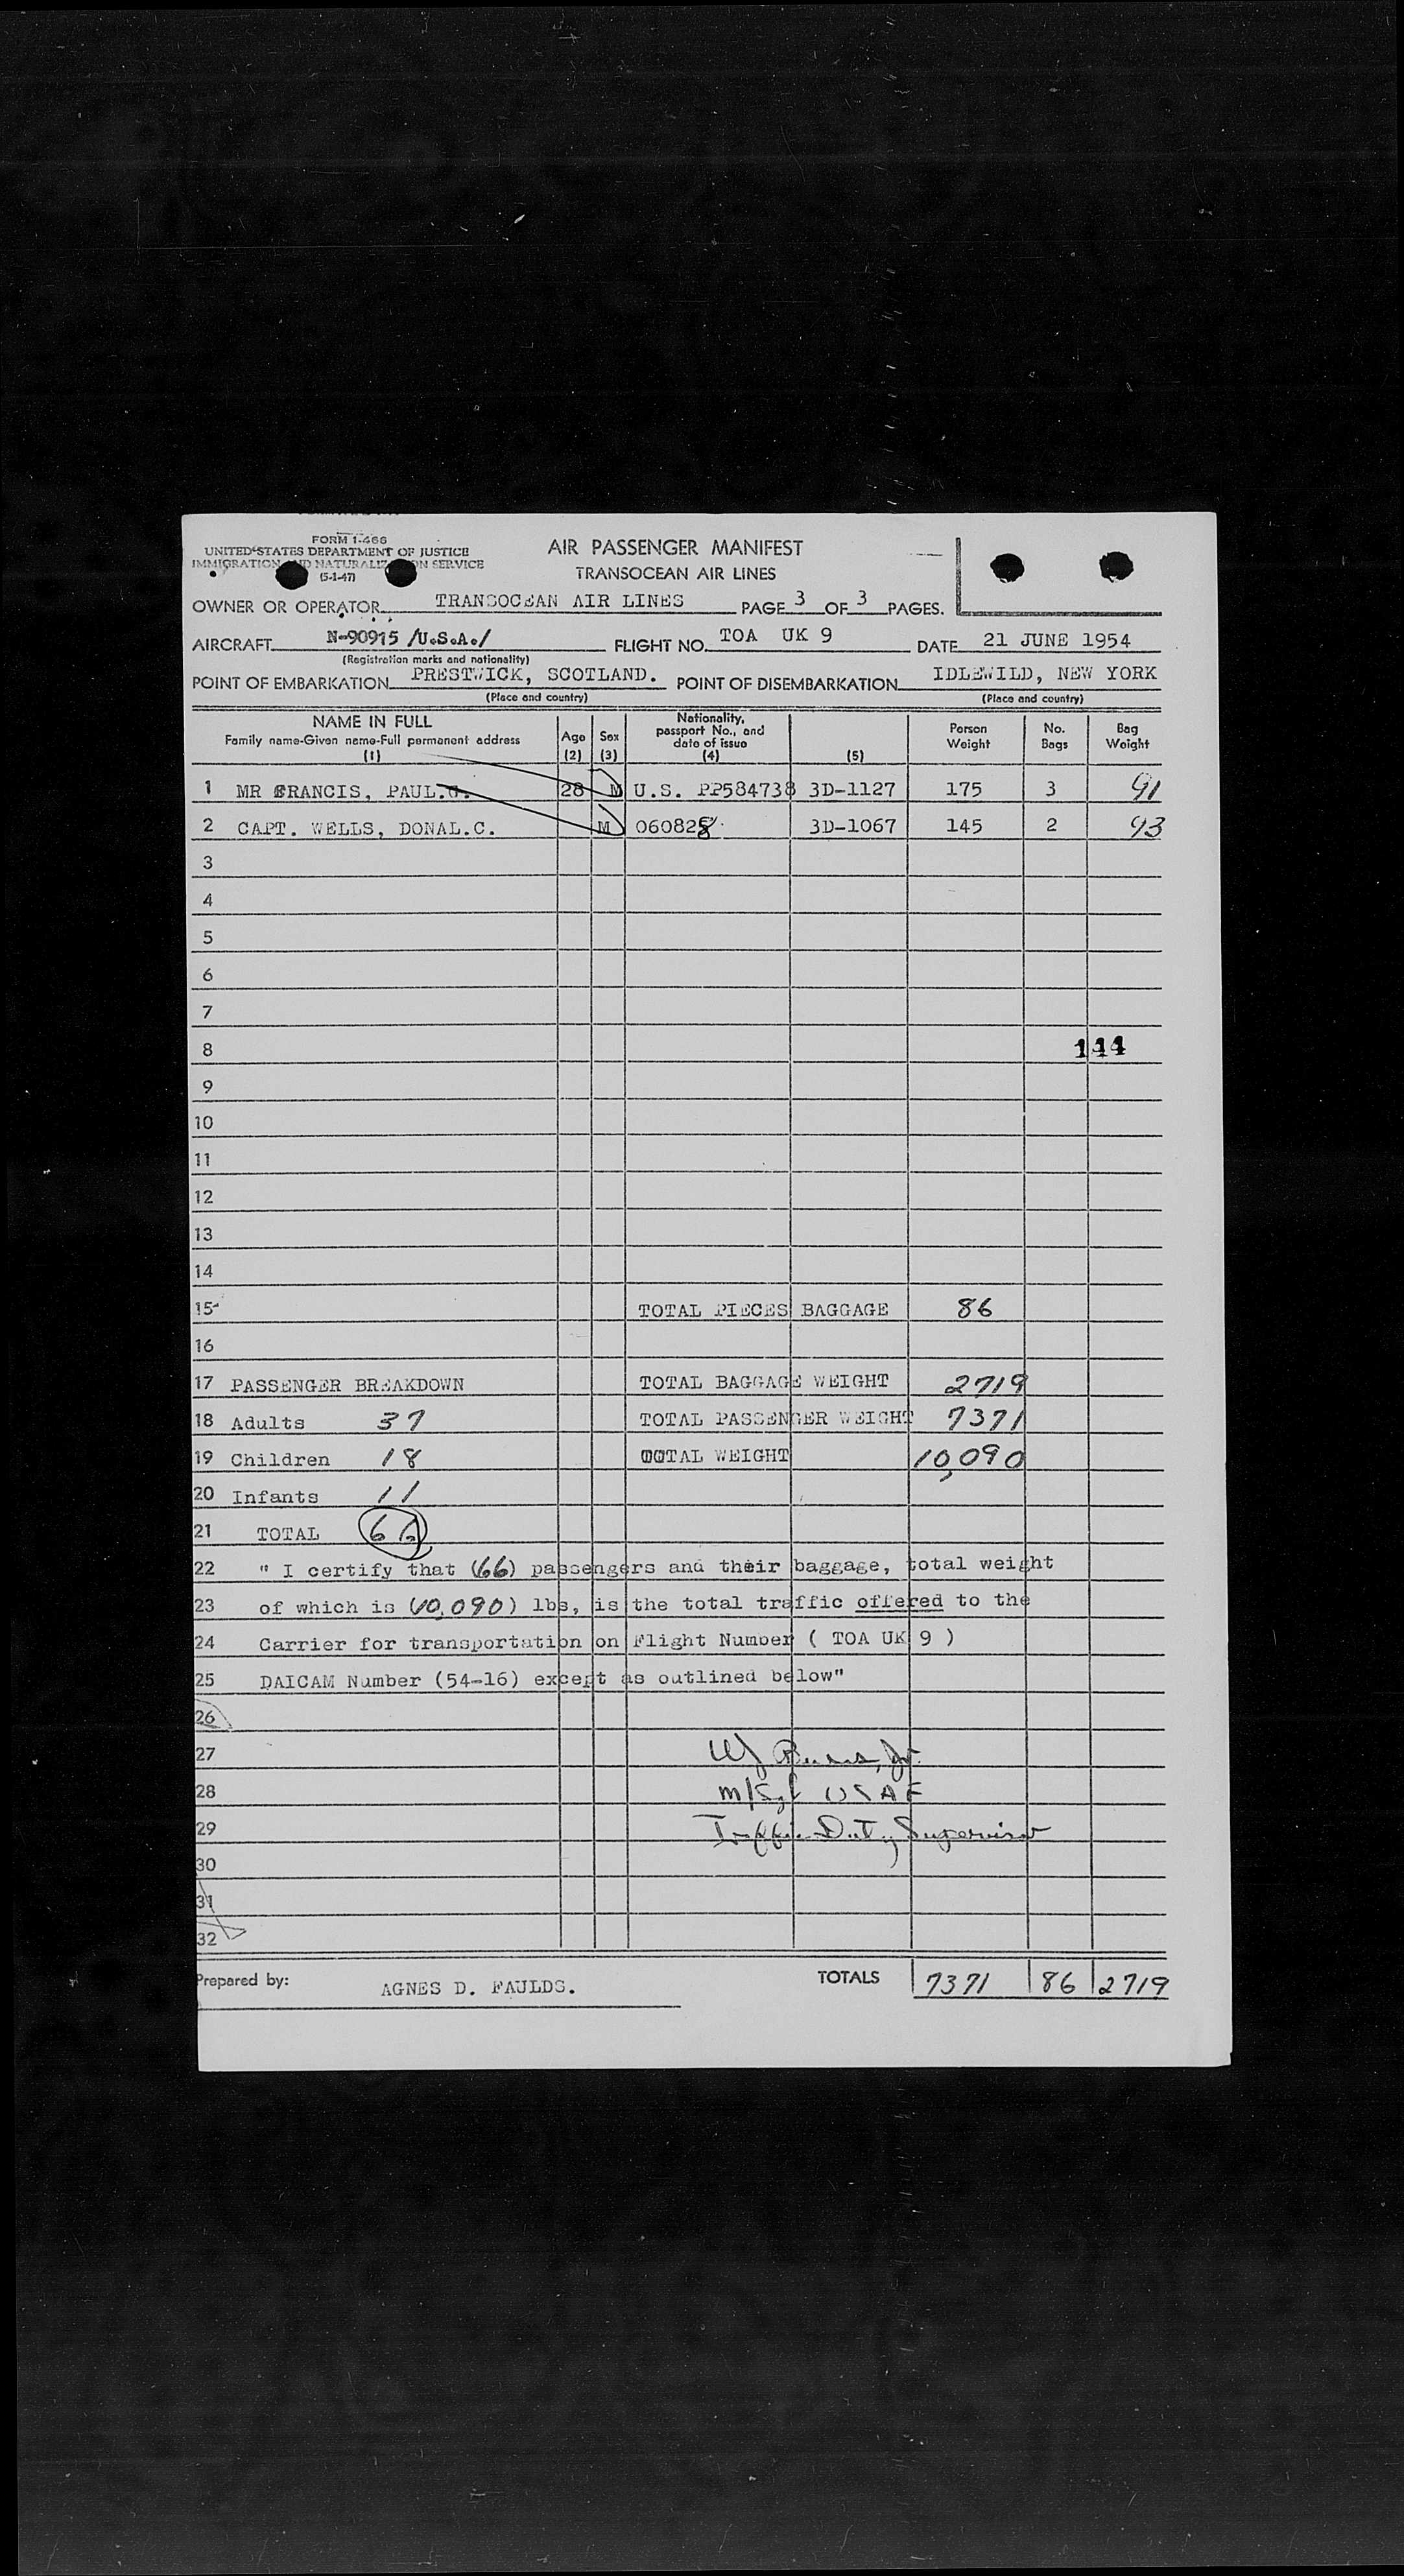 FORM 1-466
UNITED STATES DEPARTMENT OF JUSTICE
IMMIGRATION AND NATURALIZATION SERVICE
(5-1-47)
AIR PASSENGER MANIFEST
TRANSOCEAN AIR LINES
OWNER OR OPERATOR TRANSOCEAN AIR LINES PAGE 3 OF 3 PAGES.
AIRCRAFT N-90915 /U.S.A./ FLIGHT NO. TOA UK 9 DATE 21 JUNE 1954
(Registration marks and nationality)
POINT OF EMBARKATION PRESTWICK, SCOTLAND. POINT OF DISEMBARKATION IDLEWILD, NEW YORK
(Place and country) (Place and country)
NAME IN FULL
Family name-Given name-Full permanent address
(1)
Age
(2)
Sex
(3)
Nationality,
passport No., and
date of issue
(4)
(5)
Person
Weight
No.
Bags
Bag
Weight
1 MR FRANCIS, PAUL.G. 28 M U.S. PP584738 3D-1127 175 3 91
2 CAPT. WELLS, DONAL.C. M 060828 3D-1067 145 2 93
3
4
5
6
7
8 144
9
10
11
12
13
14
15 TOTAL PIECES BAGGAGE 86
16
17 PASSENGER BREAKDOWN TOTAL BAGGAGE WEIGHT 2719
18 Adults 37 TOTAL PASSENGER WEIGHT 7371
19 Children 18 TOTAL WEIGHT 10,090
20 Infants 11
21 TOTAL 66
22 " I certify that (66) passengers and their baggage, total weight
23 of which is (10,090) lbs, is the total traffic offered to the
24 Carrier for transportation on Flight Number ( TOA UK 9 )
25 DAICAM Number (54-16) except as outlined below"
26
27 Jr.
28 M/Sgt USAF
29 Traffic Duty Supervisor
30
31
32
Prepared by: AGNES D. FAULDS. TOTALS 7371 86 2719